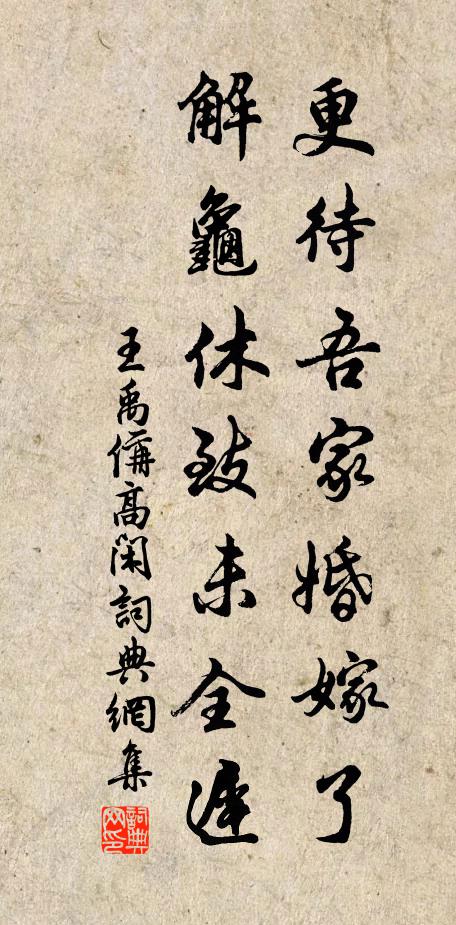 更待吾家婚嫁了
解龜休致未全遲
王禹偁高閑詞典網集
詞典网印